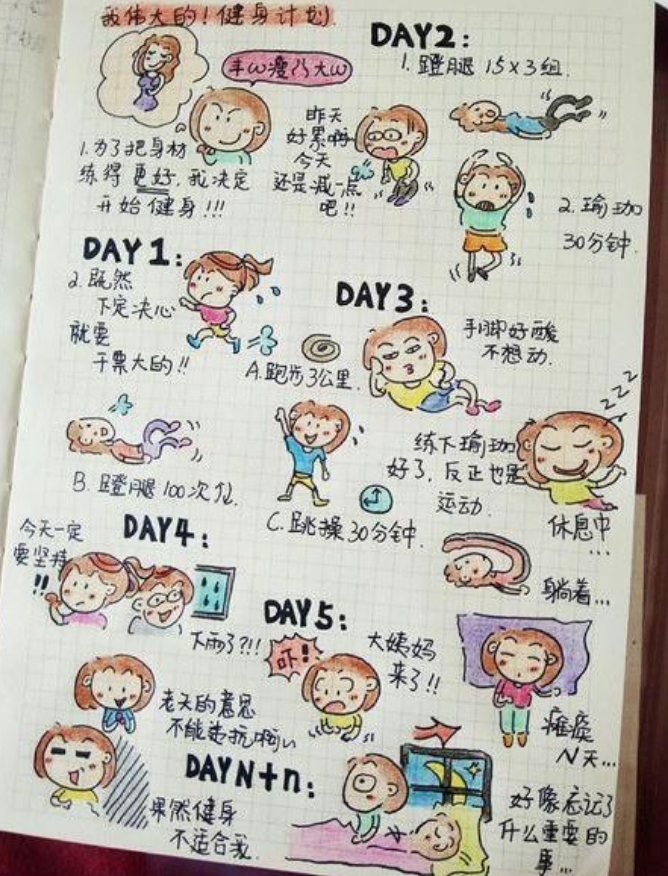 我伟大的！健身计划.
丰ω瘦乃大ω
1.为了把身材
练得更好,我决定
开始健身!!!
DAY1:
2.既然
下定决心
就要
干票大的!!
A.跑步3公里.
B.蹬腿100次位.
C.跳操30分钟.
DAY2:
1.蹬腿 15×3组.
昨天
好累啊
今天
还是减一点
吧!!
2.瑜珈
30分钟.
DAY3:
手脚好酸
不想动.
练下瑜珈
好了,反正也是
运动.
zzz
休息中
...
躺着...
DAY4:
今天一定
要坚持
!!
下雨了?!!
老天的意思
不能违抗啊
果然健身
不适合我.
DAY5:
吓!
大姨妈
来了!!
瘫痪
N天...
DAYN+n:
好像忘记了
什么重要的
事...